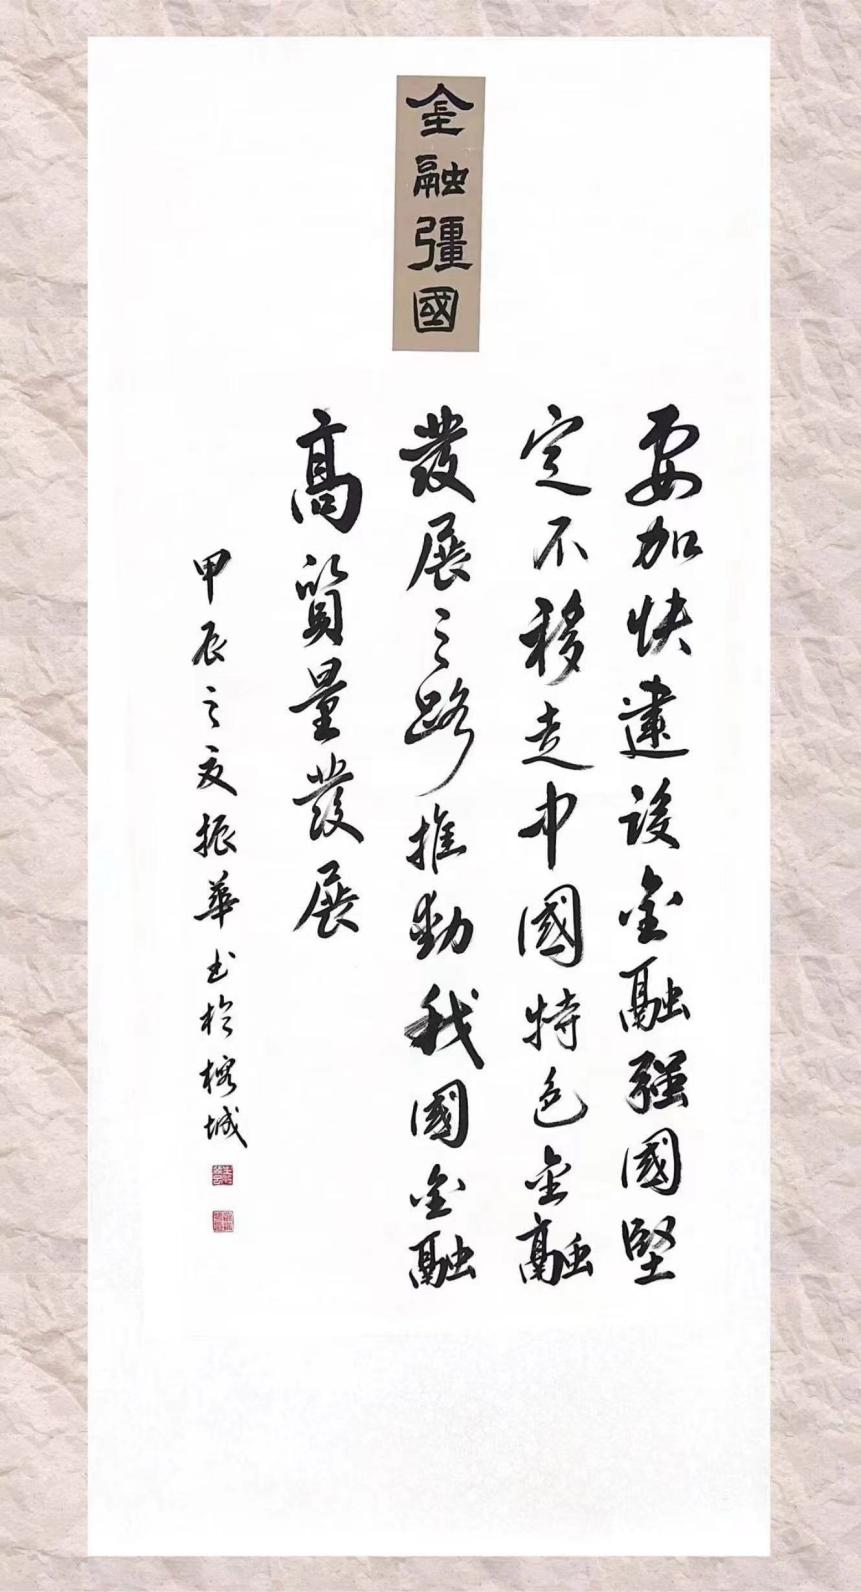 金融彊國
要加快建設金融强國堅
定不移走中國特色金融
發展之路推動我國金融
高質量發展
甲辰之夏振華书於榕城